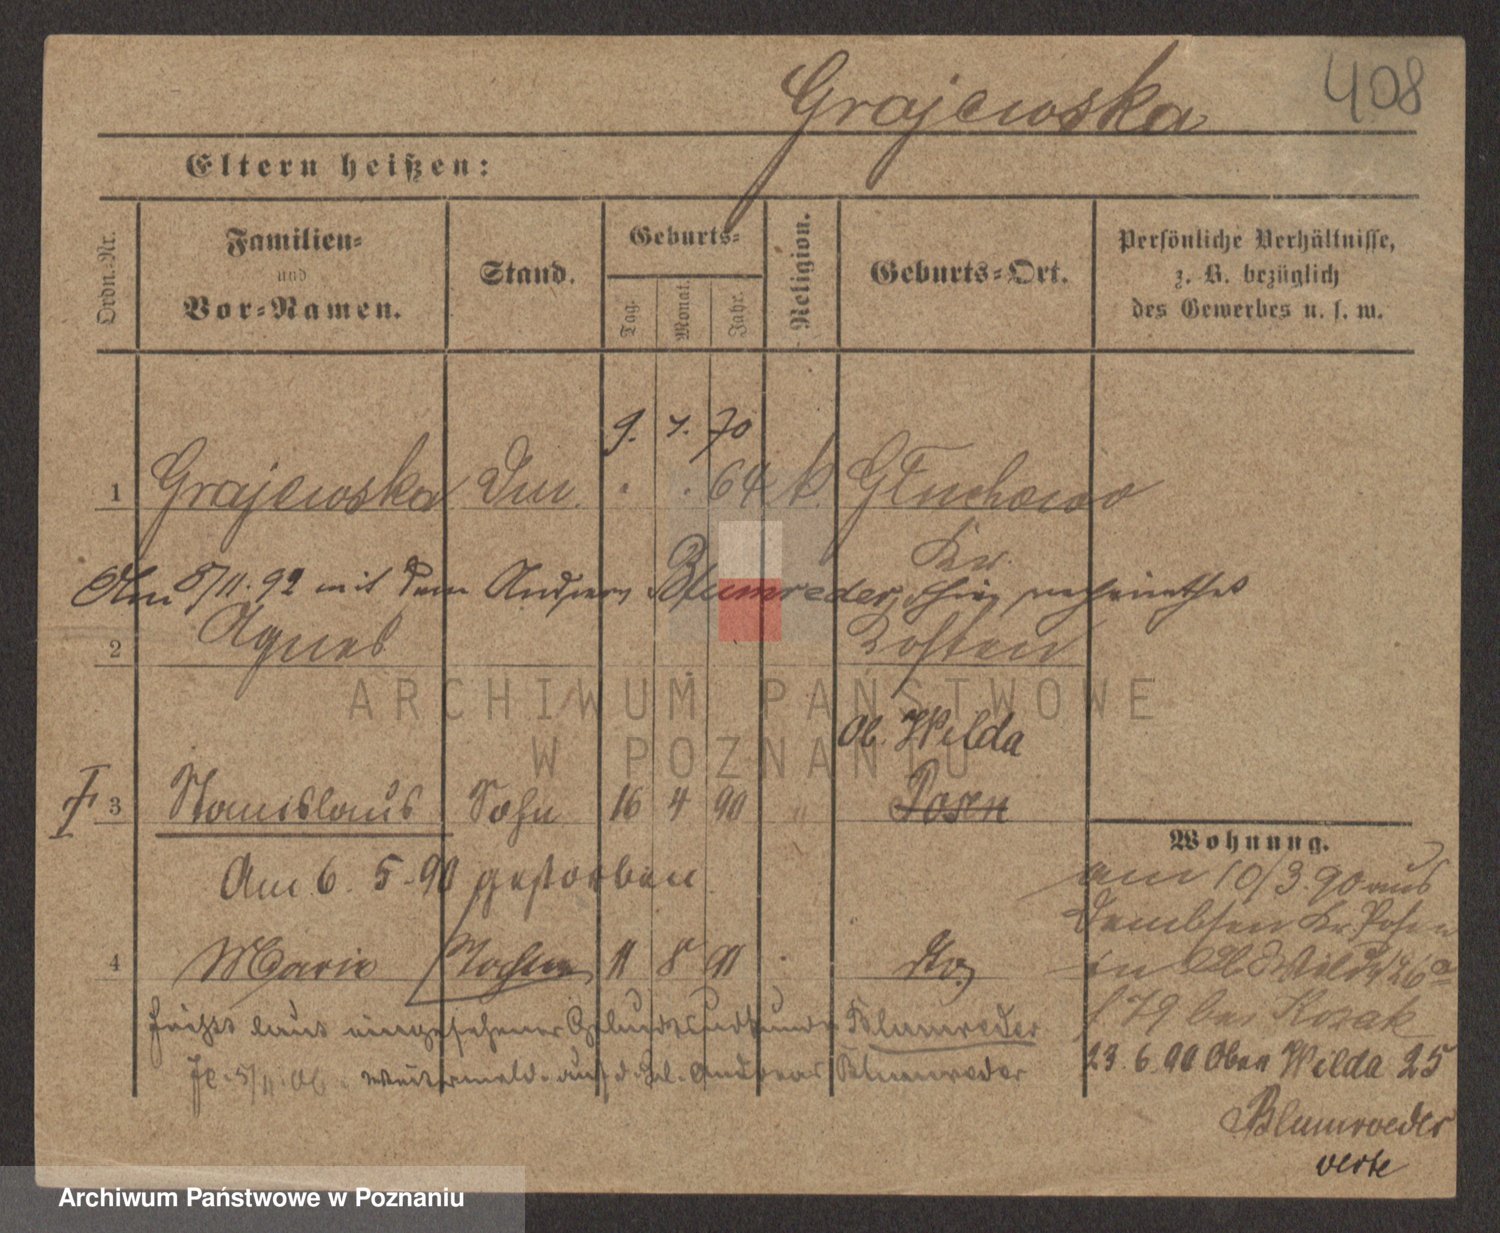 408
Grajewska
Eltern heißen:
Ordn.-Nr.
Familien-
und
Vor-Namen.
Stand.
Geburts-
Tag. Monat. Jahr.
Religion.
Geburts-Ort.
Persönliche Verhältnisse,
z. B. bezüglich
des Gewerbes u. s. w.
9. 7. 70
1 Grajewska 64 k. Głuchowo
Kr.
Am 5/11. 92 mit dem Blumreder, verheirathet
2 Agnes Kosten
Ob. Wilda
3 Stanislaus Sohn 16 4 90 " Posen
Am 6. 5. 90 gestorben
4 Marie Tochter 11 8 91
heißt laut eingesehener Geburtsurkunde Blumreder
5/11. 06 Andreas Blumreder
Wohnung.
am 10/3. 90 aus
Dembsen Kr. Posen
in Ob. Wilda 26a
f 79 bei Kozak
23. 6. 90 Ober Wilda 25
Blumroeder
verte
ARCHIWUM PAŃSTWOWE
W POZNANIU
Archiwum Państwowe w Poznaniu